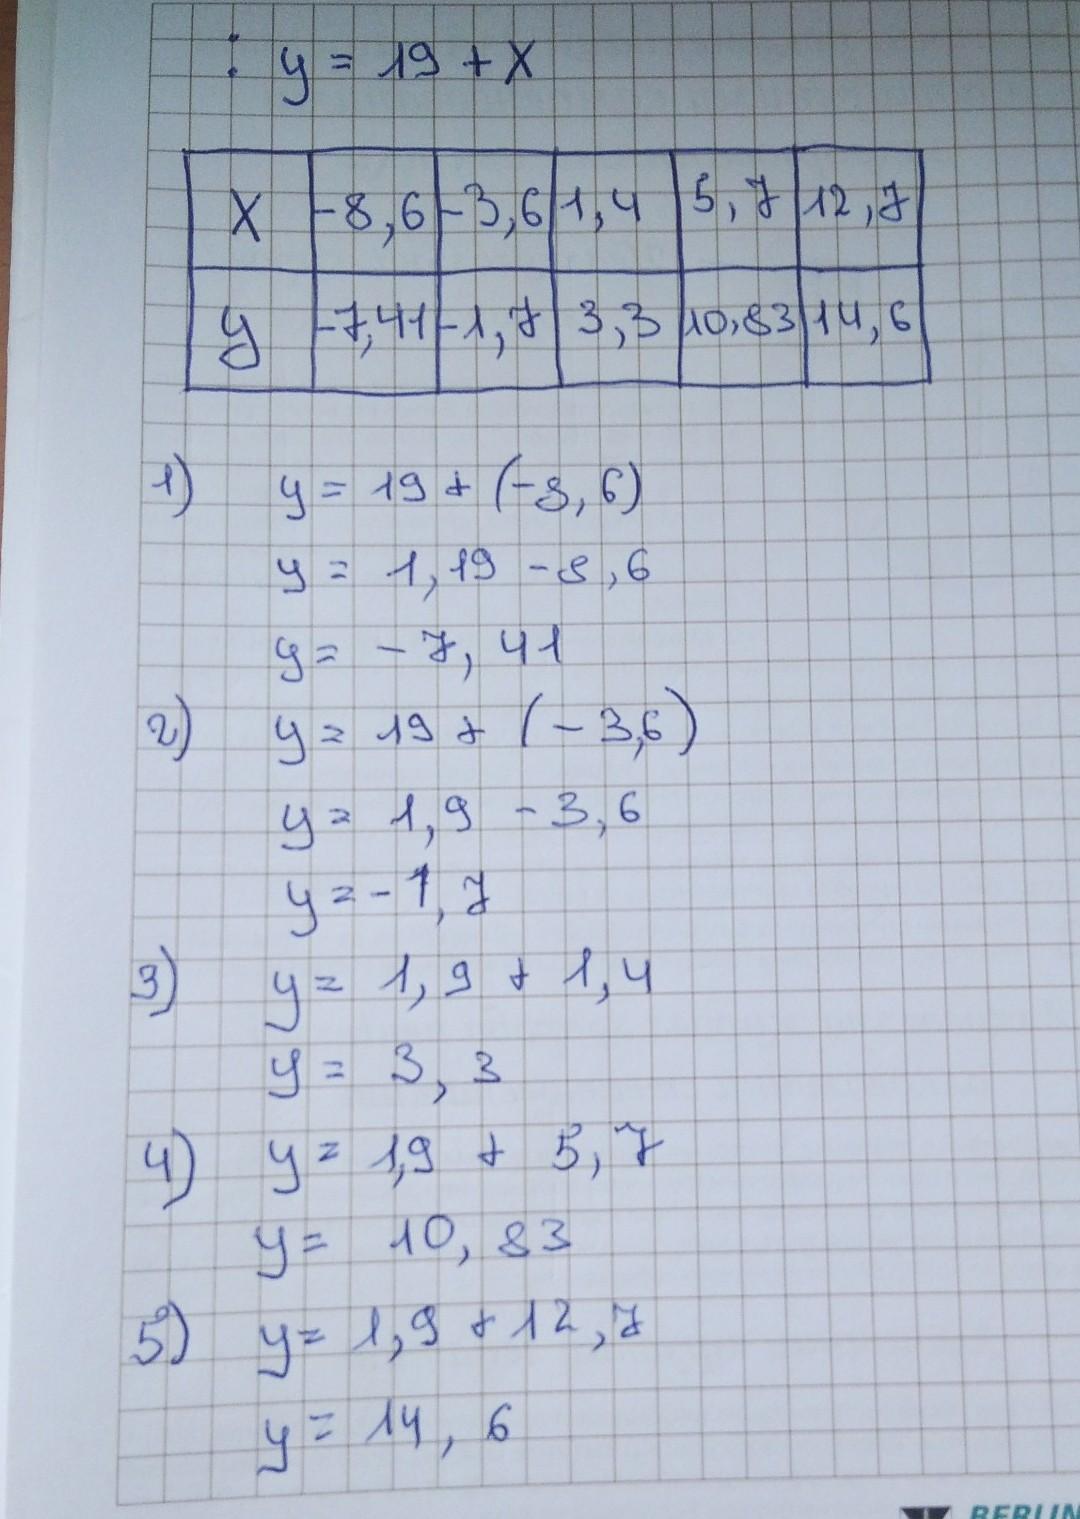 : y = 19 + x
x -8,6 -3,6 1,4 5,7 12,7
y -7,41 -1,7 3,3 10,83 14,6
1) y = 19 + (-8,6)
y = 1,19 - 8,6
y = - 7,41
2) y = 19 + (-3,6)
y = 1,9 - 3,6
y = -1,7
3) y = 1,9 + 1,4
y = 3,3
4) y = 1,9 + 5,7
y = 10,83
5) y = 1,9 + 12,7
y = 14,6
BERLIN